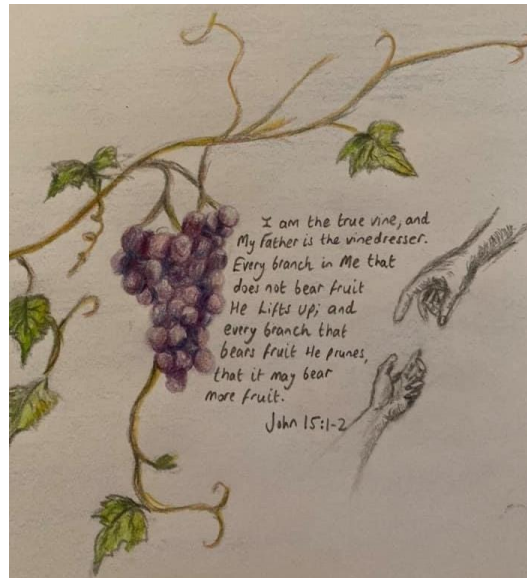 I am the true vine, and
My Father is the vinedresser.
Every branch in Me that
does not bear fruit
He Lifts up; and
every branch that
bears fruit He prunes,
that it may bear
more fruit.
John 15:1-2